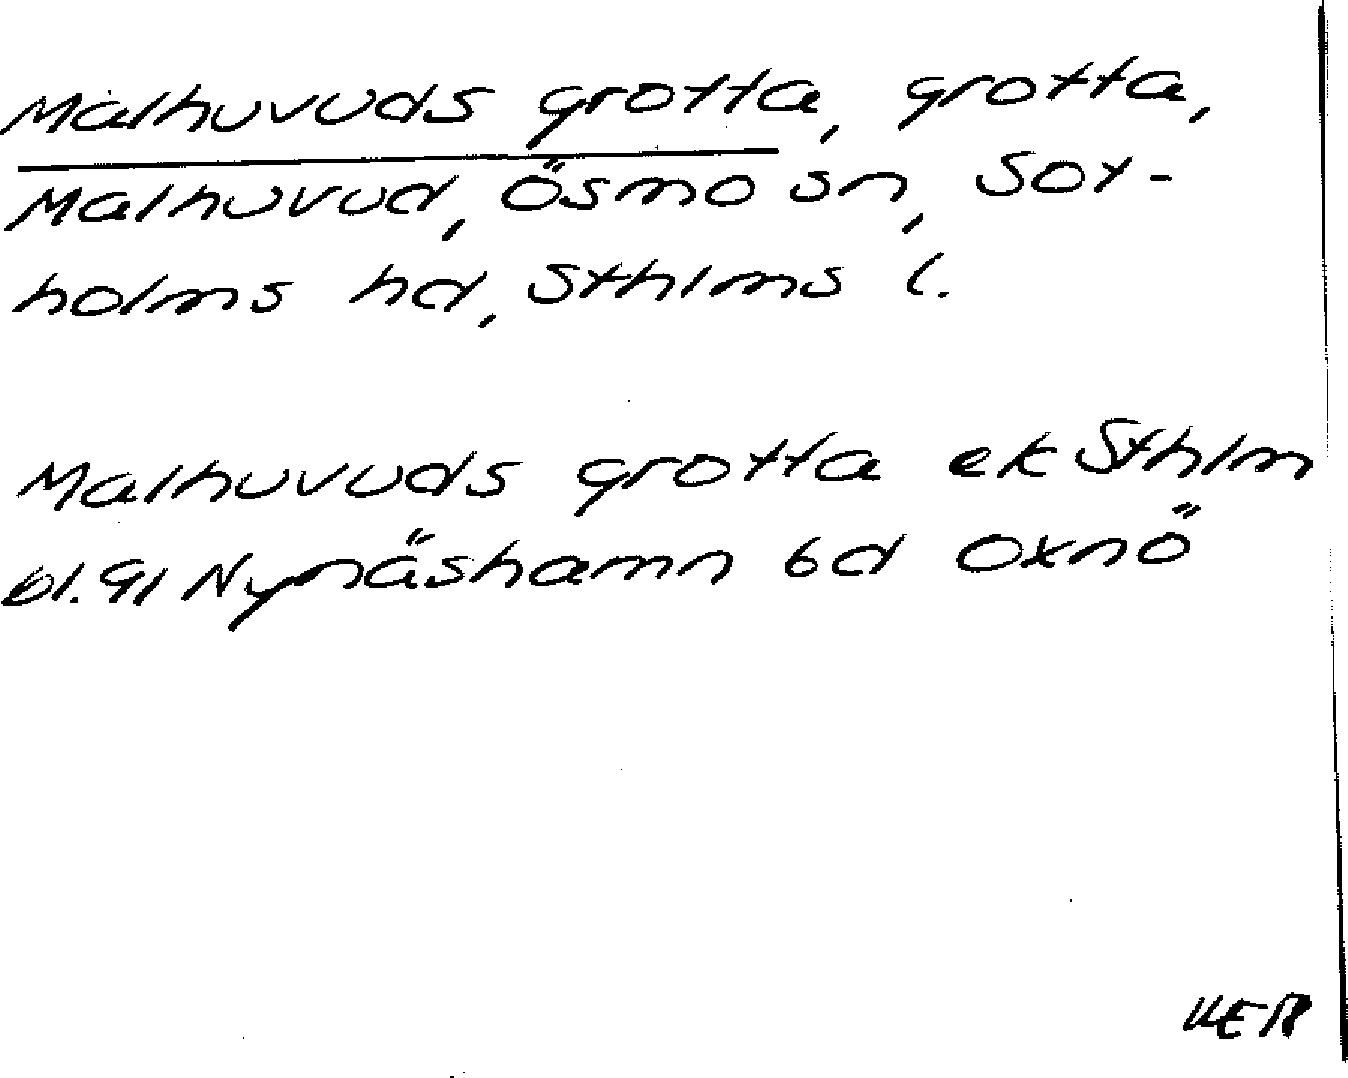 Malhuvuds grotta, grotta,
Malhuvud, Ösmo sn, Sot-
holms hd, Sthlms l.
Malhuvuds grotta ek Sthlm
bl. 91 Nynäshamn 6d Oxnö